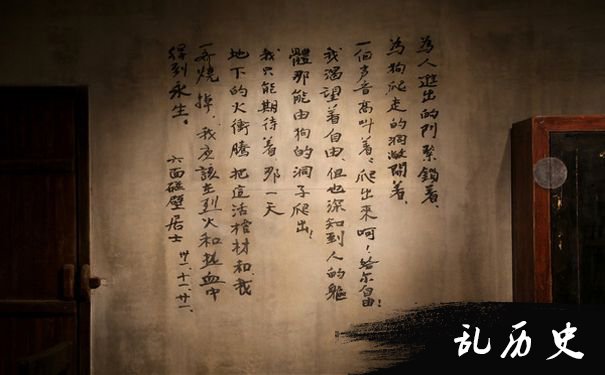 為人進出的门緊鎖着、
為狗爬走的洞敞開着、
一個声音高叫着:爬出來呵!給尔自由!
我渴望着自由、但也深知到人的軀
體那能由狗的洞子爬出!
我只能期待着、那一天
地下的火衝騰把這活棺材和我
一齐燒掉、我應該在烈火和热血中
得到永生。
六面碰壁居士
卅一·十一·廿一、
乱历史